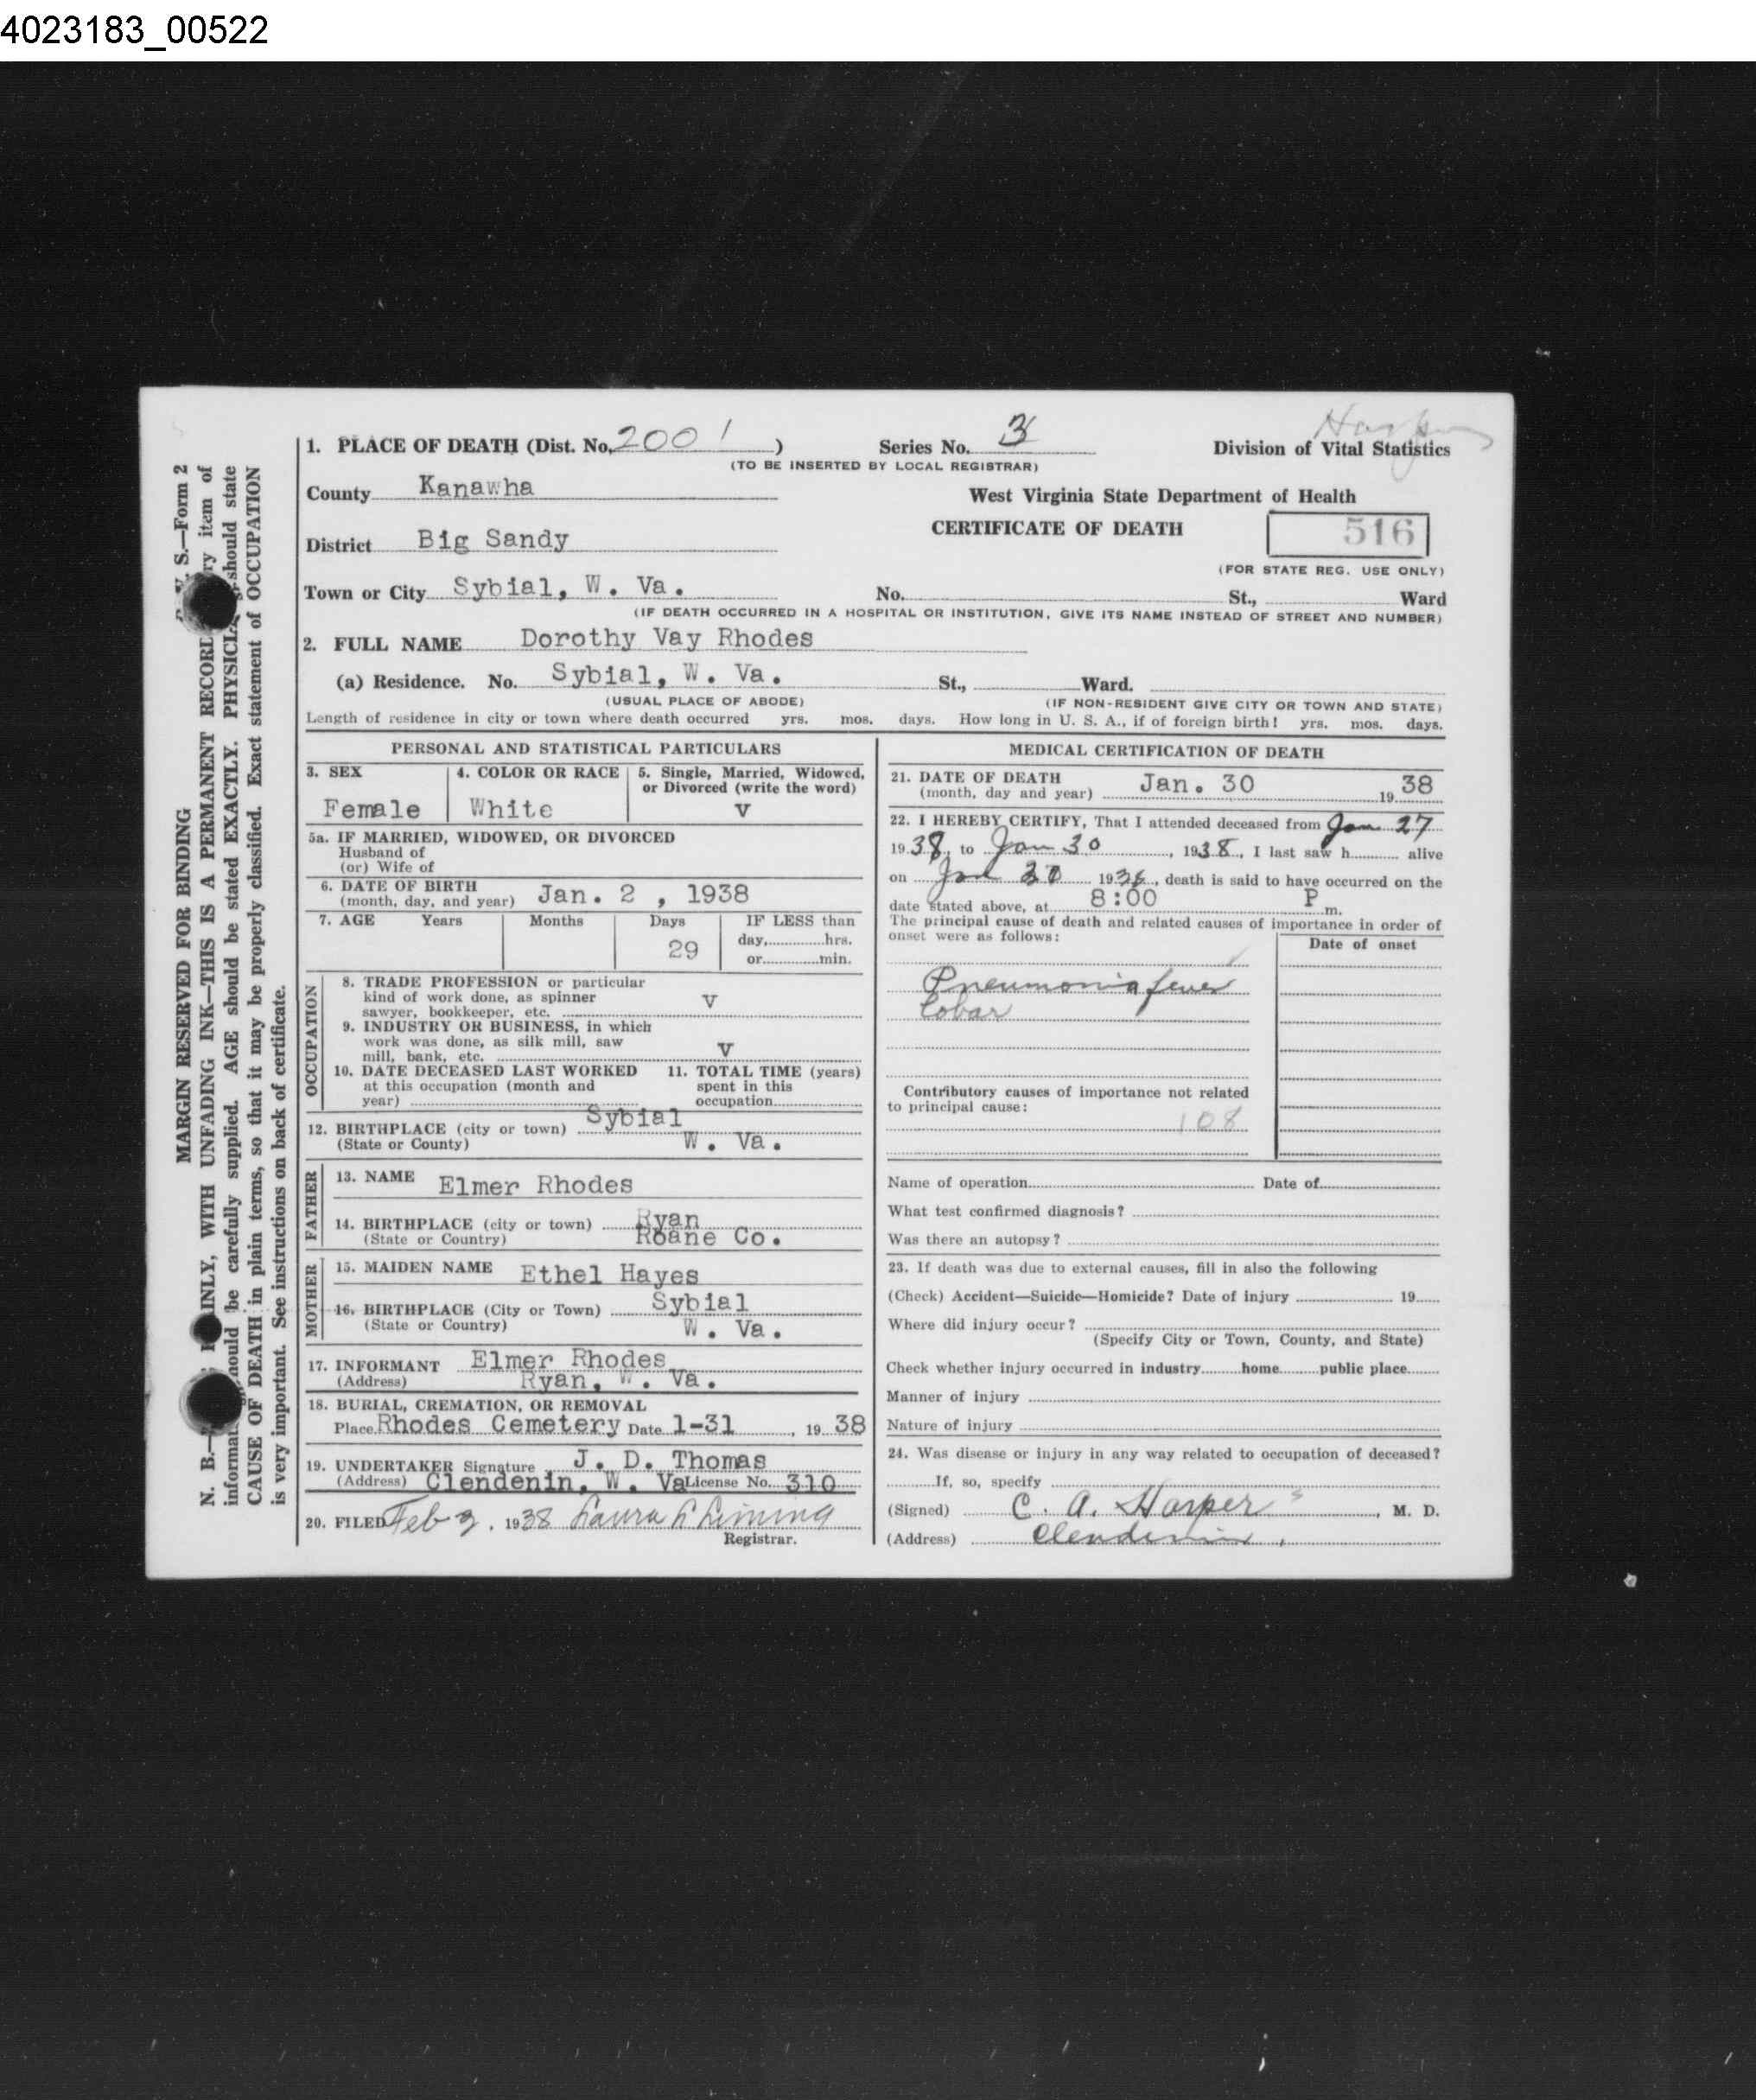 4023183_00522
Harper
1. PLACE OF DEATH (Dist. No. 2001 ) Series No. 3 Division of Vital Statistics
(TO BE INSERTED BY LOCAL REGISTRAR)
County Kanawha West Virginia State Department of Health
CERTIFICATE OF DEATH 516
District Big Sandy
(FOR STATE REG. USE ONLY)
Town or City Sybial, W. Va. No. St., Ward
(IF DEATH OCCURRED IN A HOSPITAL OR INSTITUTION, GIVE ITS NAME INSTEAD OF STREET AND NUMBER)
2. FULL NAME Dorothy Vay Rhodes
(a) Residence. No. Sybial, W. Va. St., Ward.
(USUAL PLACE OF ABODE) (IF NON-RESIDENT GIVE CITY OR TOWN AND STATE)
Length of residence in city or town where death occurred yrs. mos. days. How long in U. S. A., if of foreign birth? yrs. mos. days.
PERSONAL AND STATISTICAL PARTICULARS
3. SEX 4. COLOR OR RACE 5. Single, Married, Widowed,
or Divorced (write the word)
Female White V
5a. IF MARRIED, WIDOWED, OR DIVORCED
Husband of
(or) Wife of
6. DATE OF BIRTH
(month, day, and year) Jan. 2 , 1938
7. AGE Years Months Days IF LESS than
day, hrs.
29
or min.
OCCUPATION
8. TRADE PROFESSION or particular
kind of work done, as spinner V
sawyer, bookkeeper, etc.
9. INDUSTRY OR BUSINESS, in which
work was done, as silk mill, saw
mill, bank, etc. V
10. DATE DECEASED LAST WORKED 11. TOTAL TIME (years)
at this occupation (month and spent in this
year) occupation
12. BIRTHPLACE (city or town) Sybial
(State or County) W. Va.
FATHER
13. NAME Elmer Rhodes
14. BIRTHPLACE (city or town) Ryan
(State or Country) Roane Co.
MOTHER
15. MAIDEN NAME Ethel Hayes
16. BIRTHPLACE (City or Town) Sybial
(State or Country) W. Va.
17. INFORMANT Elmer Rhodes
(Address) Ryan, W. Va.
18. BURIAL, CREMATION, OR REMOVAL
Place Rhodes Cemetery Date 1-31 , 19 38
19. UNDERTAKER Signature J. D. Thomas
(Address) Clendenin, W. Va License No. 310
20. FILED Feb 3, 1938 Laura
Registrar.
MEDICAL CERTIFICATION OF DEATH
21. DATE OF DEATH
(month, day and year) Jan. 30 19 38
22. I HEREBY CERTIFY, That I attended deceased from Jan 27
19 38, to Jan 30 , 1938, I last saw h alive
on Jan 30 1938, death is said to have occurred on the
date stated above, at 8:00 P m.
The principal cause of death and related causes of importance in order of
onset were as follows:
Date of onset
Pneumonia fever
Lobar
Contributory causes of importance not related
to principal cause:
108
Name of operation Date of
What test confirmed diagnosis?
Was there an autopsy?
23. If death was due to external causes, fill in also the following
(Check) Accident—Suicide—Homicide? Date of injury 19
Where did injury occur?
(Specify City or Town, County, and State)
Check whether injury occurred in industry home public place
Manner of injury
Nature of injury
24. Was disease or injury in any way related to occupation of deceased?
If, so, specify
(Signed) C. A. Harper , M. D.
(Address) Clendenin,
S.—Form 2
MARGIN RESERVED FOR BINDING
N. B.— INLY, WITH UNFADING INK—THIS IS A PERMANENT RECORD item of
should be carefully supplied. AGE should be stated EXACTLY. should state
CAUSE OF DEATH in plain terms, so that it may be properly classified. Exact statement of OCCUPATION
is very important. See instructions on back of certificate.